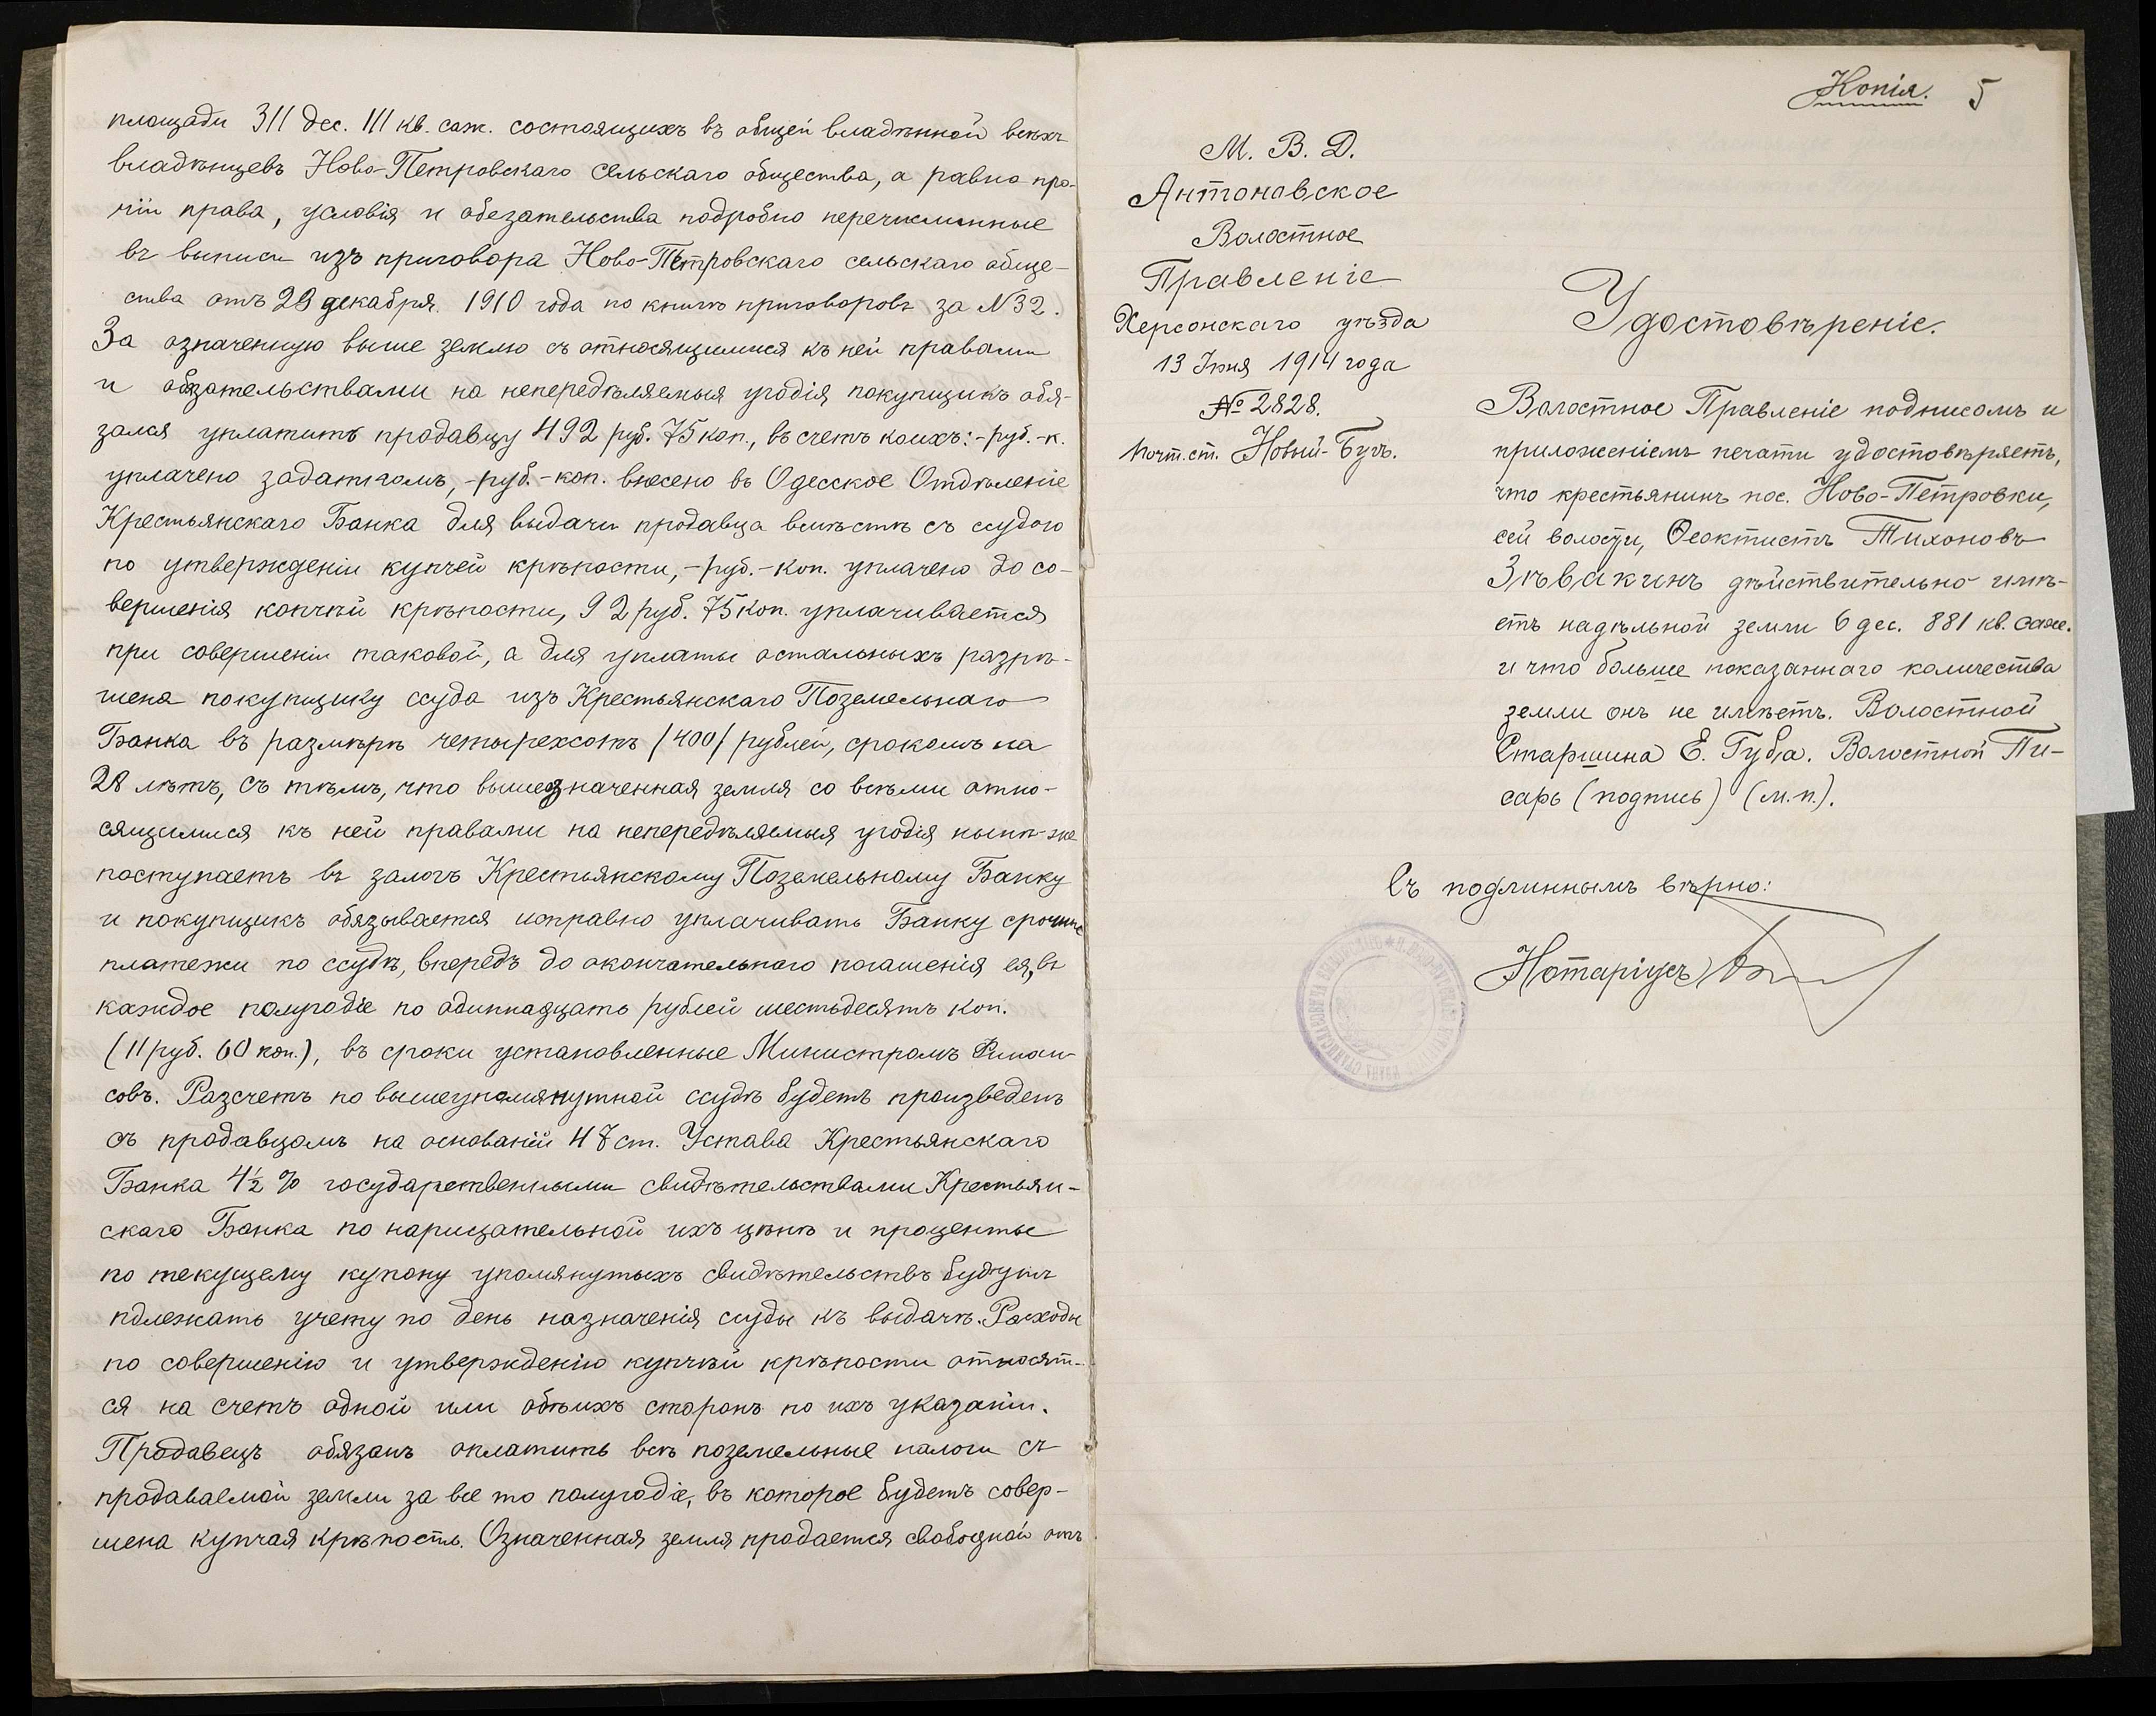 площади 311 дес. 111 кв. саж. состоящихъ въ общей владѣнной всѣхъ
владѣнцевъ Ново-Петровскаго сельскаго общества, а равно про-
чіи права, условія и обезательства подробно перечисленные
въ выписи изъ приговора Ново-Петровскаго сельскаго обще-
ства отъ 29 декабря. 1910 года по книгѣ приговоровъ за №32.
За означенную выше землю съ относящимися къ ней правами
и обязательствами на непередѣляемыя угодія покупщикъ обя-
зался уплатить продавцу 492 руб. 75 коп., въ счетъ коихъ: - руб. - к.
уплачено задаткомъ, - руб. - коп. внесено въ Одесское Отдѣленіе
Крестьянскаго Банка для выдачи продавца вмѣстѣ съ ссудою
по утвержденіи купчей крѣпости, - руб. - коп. уплачено до со-
вершенія копчѣй крѣпости, 92 руб. 75 коп. уплачивается
при совершеніи таковой, а для уплаты остальныхъ разрѣ-
шена покупщику ссуда изъ Крестьянскаго Поземельнаго
Банка въ размѣрѣ четырехсотъ /400/ рублей, срокомъ на
28 лѣтъ, съ тѣмъ, что вышеозначенная земля со всѣми отно-
сящимися къ ней правами на непередѣляемыя угодія нынѣ-же
поступаетъ въ залогъ Крестьянскому Поземельному Банку
и покупщикъ обязывается исправно уплачивать Банку срочные
платежи по ссудѣ, впередъ до окончательнаго погашенія ея, въ
каждое полугодіе по одиннадцать рублей шестьдесятъ коп.
(11 руб. 60 коп.), въ сроки установленные Министромъ Финан-
совъ. Разсчетъ по вышеупомянутной ссудѣ будетъ произведенъ
съ продавцомъ на основаніи 47 ст. Устава Крестьянскаго
Банка 4½ % государственными свидѣтельствами Крестьян-
скаго Банка по нарицательной ихъ цѣнѣ и проценты
по текущему купону упомянутыхъ свидѣтельствъ будутъ
пдлежать учету по день назначенія ссуды къ выдачѣ. Расходы
по совершенію и утвержденію купчѣй крѣпости относят-
ся на счетъ одной или обѣихъ сторонъ по ихъ указаніи.
Продавецъ обязанъ оплатить всѣ поземельные налоги съ
продаваемой земли за все то полугодіе, въ которое будетъ совер-
шена купчая крѣпость. Означенная земля продается свободной отъ
Копія. 5
М. В. Д.
Антоновское
Волостное
Правленіе
Херсонскаго уѣзда
13 Іюня 1914 года
№ 2828.
почт. ст. Новый-Бугъ.
Удостовѣреніе.
Волостное Правленіе подписомъ и
приложеніемъ печати удостовѣряетъ,
что крестьянинъ пос. Ново-Петровки,
сей волости, Ѳеоктистъ Тихоновъ
Зѣвакинъ дѣйствительно имѣ-
етъ надѣльной земли 6 дес. 881 кв. саж.
и что больше показаннаго количества
земли онъ не имѣетъ. Волостной
Старшина Е. Губа. Волостной Пи-
сарь (подпись) (м.п.).
Съ подлиннымъ вѣрно:
Нотаріусъ